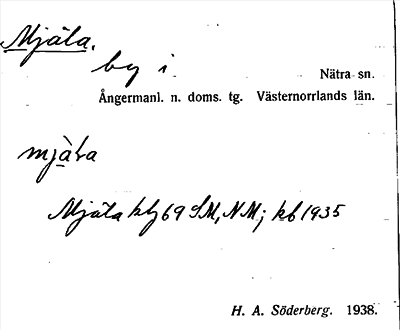 Mjäla.
by i Nätra sn.
Ångermanl. n. doms. tg. Västernorrlands län.
Mjäla klj 69 SM, NM; kb 1935
H. A. Söderberg. 1938.